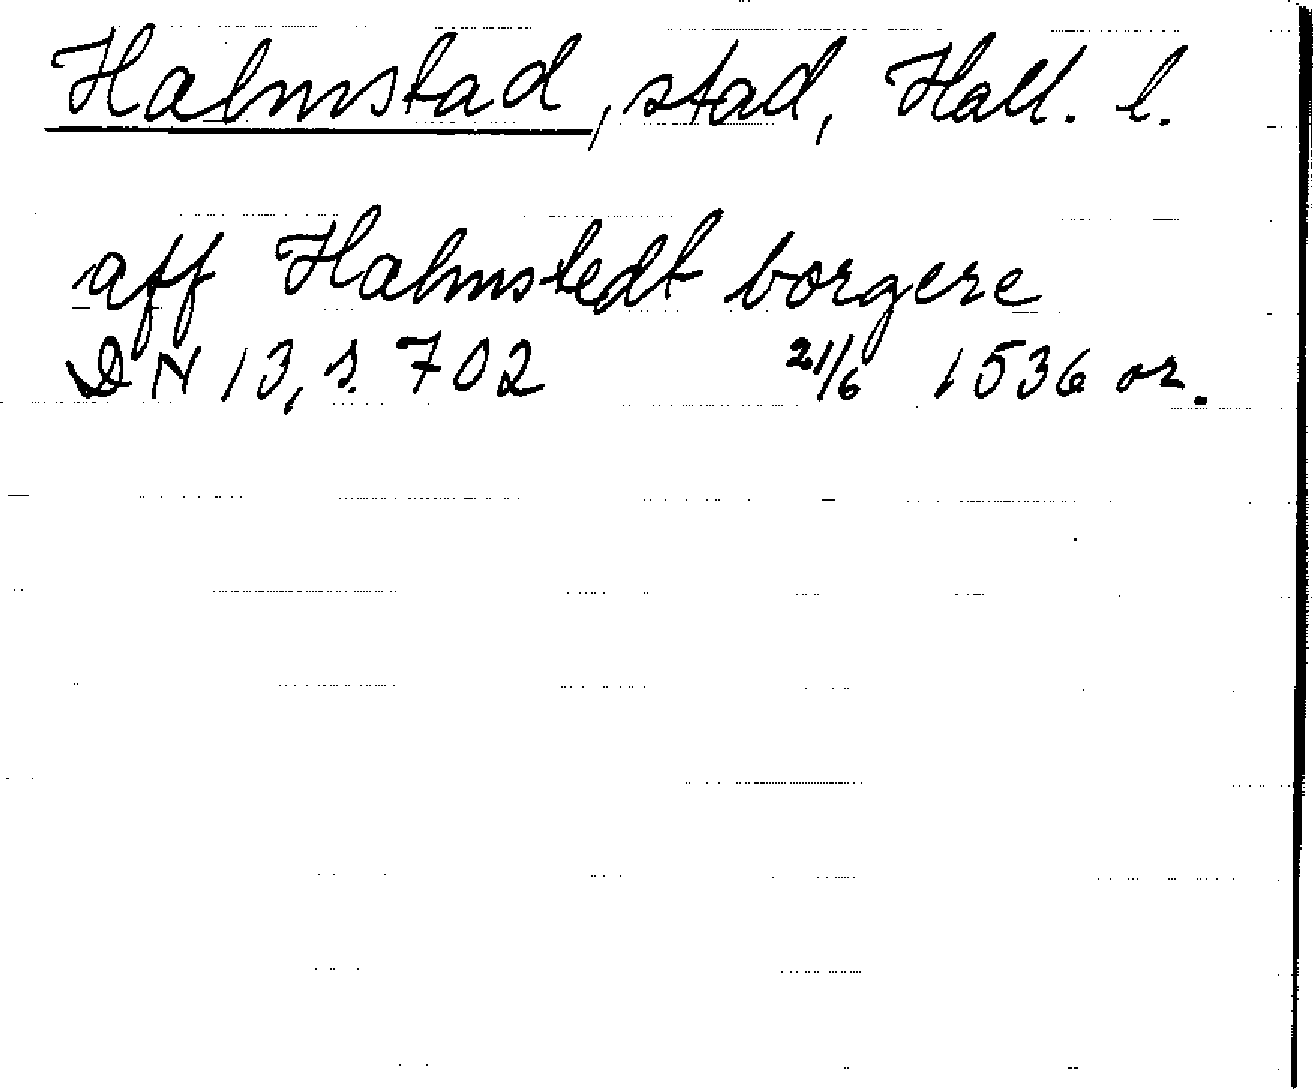 Halmstad, stad, Hall. l.
aff Halmstedt borgere
DN 13, s. 702 21/6 1536 or.